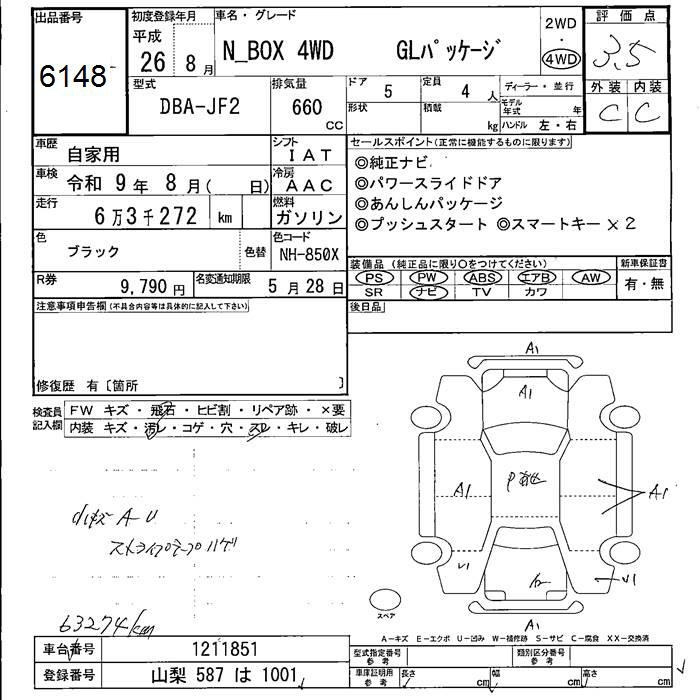 出品番号
6148
初度登録年月
平成
26 8月
車名・グレード
N_BOX 4WD GLパッケージ
2WD
・
4WD
評価点
3.5
外装 内装
C C
型式
DBA-JF2
排気量
660
CC
ドア
5
定員
4 人
形状
積載
kg
ディーラー・並行
モデル年式 年
ハンドル 左・右
車歴
自家用
シフト
IAT
車検
令和 9年 8月( 日)
冷房
AAC
走行
6万3千272 km
燃料
ガソリン
色
ブラック
色替
色コード
NH-850X
R券
9,790円
名変通知期限
5月28日
セールスポイント(正常に機能するものに限ります)
◎純正ナビ
◎パワースライドドア
◎あんしんパッケージ
◎プッシュスタート ◎スマートキー×2
装備品(純正品に限り○をつけてください)
PS PW ABS エアB AW
SR ナビ TV カワ
新車保証書
有・無
後日品
注意事項申告欄(不具合内容等は具体的に記入して下さい)
修復歴 有〔箇所 〕
検査員記入欄
FW キズ・飛石・ヒビ割・リペア跡・×要
内装 キズ・汚レ・コゲ・穴・スレ・キレ・破レ
A1
A1
A1
A1
A1
スペア
A-U
ストライプテープハゲ
63274km
A-キズ E-エクボ U-凹み W-補修跡 S-サビ C-腐食 XX-交換済
車台番号
1211851
登録番号
山梨 587 は 1001
型式指定番号
参考
類別区分番号
参考
車庫証明用
参考
長さ cm
幅 cm
高さ cm